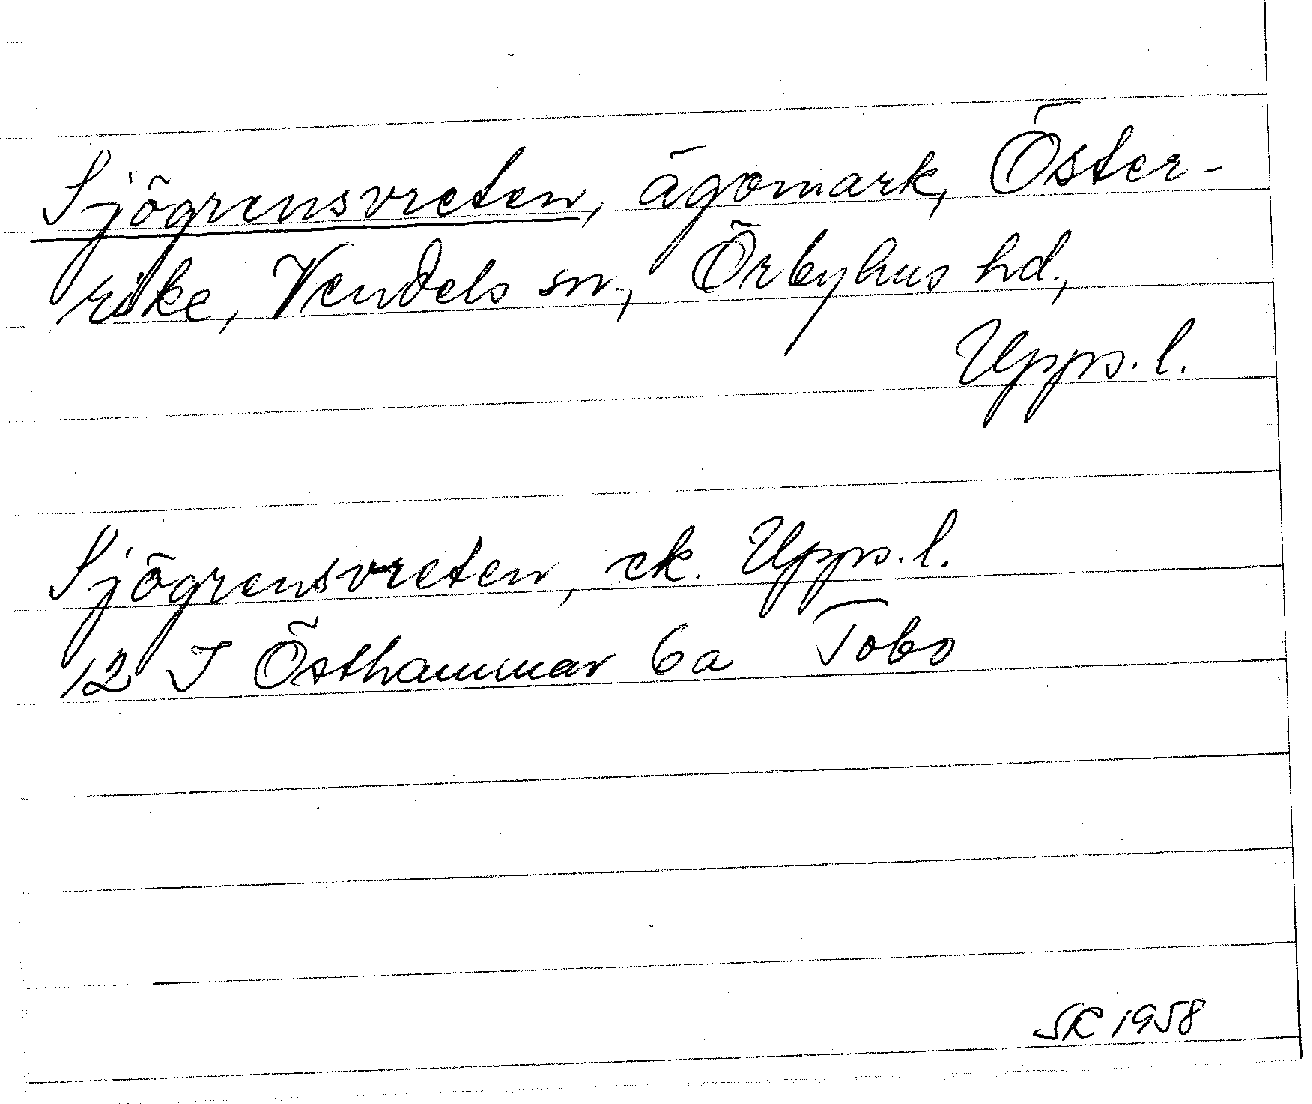 Sjögrensvreten, ägomark, Öster-
rike, Vendels sn, Örbyhus hd,
Upps. l.
Sjögrensvreten, ek. Upps. l.
12 I Östhammar 6a Tobo
SR 1958